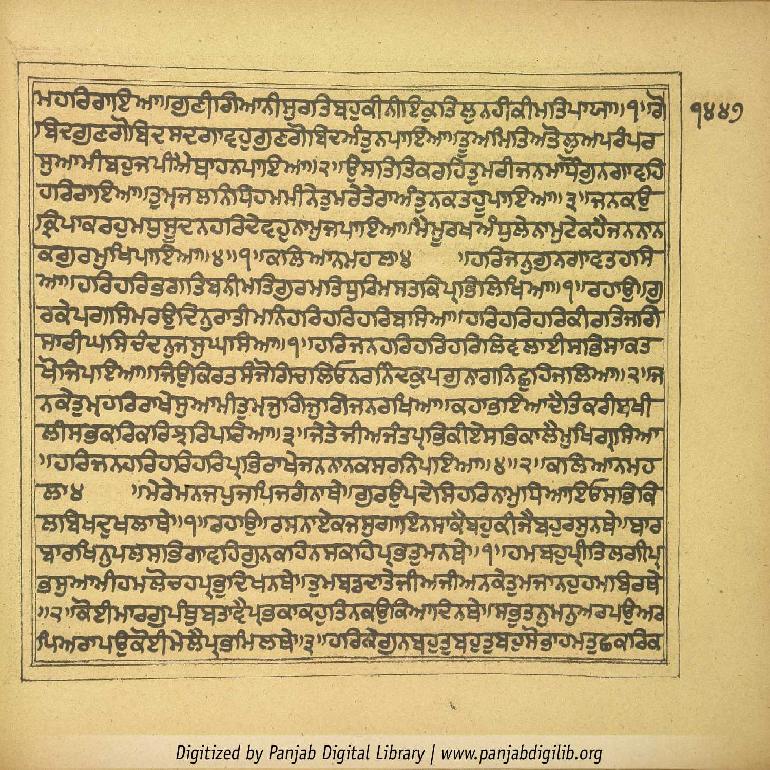 ਮਹਰਿਗਾਇਆ॥ਗੁਣੀਗਿਆਨੀਸੁਰਤਿਬਹੁਕੀਨੀਇਕੁਤਿਲੁਨਹੀਕੀਮਤਿਪਾਯਾ॥੧॥ਗੋ
੧੪੪੭
ਬਿਦਗੁਣਗੋਬਿਦਸਦਗਾਵਹੁਗੁਣਗੋਬਿਦਅੰਤੁਨਪਾਇਆ॥ਤੂਅਮਿਤਿਅਤੋਲੁਅਪਰੰਪਰ
ਸੁਆਮੀਬਹੁਜਪੀਐਥਾਹਨਪਾਇਆ॥੨॥ਉਸਤਿਤਿਕਰਹਿਤੁਮਰੀਜਨਮਾਧੌਗੁਨਗਾਵਹਿ
ਹਰਿਰਾਇਆ॥ਤੁਮ੍ਜਲਨਿਧਿਹਮਮੀਨੇਤੁਮਰੇਤੇਰਾਅੰਤੁਨਕਤਹੂਪਾਇਆ॥੩॥ਜਨਕਉ
ਕ੍ਰਿਪਾਕਰਹੁਮਧਸੂਦਨਹਰਿਦੇਵਹੁਨਾਮੁਜਪਾਇਆ॥ਮੈਮੂਰਖਅੰਧੁਲੇਨਾਮੁਟੇਕਹੈਜਨਨਾਨ
ਕਗੁਰਮੁਖਿਪਾਇਆ॥੪॥੧॥ਕਲਿਆਨੁਮਹਲਾ੪ ॥ਹਰਿਜਨੁਗੁਨਗਾਵਤਹਸਿ
ਆ॥ਹਰਿਹਰਿਭਗਤਿਬਨੀਮਤਿਗੁਰਮਤਿਧੁਰਿਮਸਤਕਿਪ੍ਰਭਿਲਿਖਿਆ॥੧॥ਰਹਾਉ॥ਗੁ
ਰਕੇਪਗਸਿਮਰਉਦਿਨੁਰਾਤੀਮਨਿਹਰਿਹਰਿਹਰਿਬਸਿਆ॥ਹਰਿਹਰਿਹਰਿਕੀਰਤਿਜਗਿ
ਸਾਰੀਘਸਿਚੰਦਨੁਜਸੁਘਸਿਆ॥੧॥ਹਰਿਜਨਹਰਿਹਰਿਹਰਿਲਿਵਲਾਈਸਭਿਸਾਕਤ
ਖੋਜਿਪਇਆ॥ਜਿਉਕਿਰਤਸੰਜੋਗਿਚਲਿਓਨਰਨਿੰਦਕੁਪਗੁਨਾਗਨਿਛੁਹਿਜਲਿਆ॥੨॥ਜ
ਨਕੇਤੁਮ੍ਹਰਿਰਾਖੇਸੁਆਮੀਤੁਮਜੁਗਿਜੁਗਿਜਨਰਖਿਆ॥ਕਹਾਭਇਆਦੈਤਿਕਰੀਬਖੀ
ਲੀਸਭਕਰਿਕਰਿਝਰਿਪਰਿਆ॥੩॥ਜੇਤੇਜੀਅਜੰਤਪ੍ਰਭਿਕੀਏਸਭਿਕਾਲੈਮੁਖਿਗ੍ਰਸਿਆ
॥ਹਰਿਜਨਹਰਿਹਰਿਹਰਿਪ੍ਰਭਿਰਾਖੇਜਨਨਾਨਕਸਰਨਿਪਇਆ॥੪॥੨॥ਕਲਿਆਨਮਹ
ਲਾ੪ ॥ਮੇਰੇਮਨਜਪੁਜਪਿਜਗੰਨਾਥੇ॥ਗੁਰਉਪਦੇਸਿਹਰਿਨਾਮੁਧਿਆਇਓਸਭਿਕਿ
ਲਬਿਖਦੁਖਲਾਥੇ॥੧॥ਰਹਾਉ॥ਰਸਨਾਏਕਜਸੁਗਾਇਨਸਾਕੈਬਹੁਕੀਜੈਬਹੁਰਸੁਨਥੇ॥ਬਾਰ
ਬਾਰਖਿਨੁਪਲਸਭਿਗਾਵਹਿਗੁਨਕਹਿਨਸਕਹਿਪ੍ਰਭਤੁਮਨਥੇ॥੧॥ਹਮਬਹੁਪ੍ਰੀਤਿਲਗੀਪ੍ਰ
ਭਸੁਆਮੀਹਮਲੋਚਹਪ੍ਰਭੁਦਿਖਨਥੇ॥ਤੁਮਬਡਦਾਤੇਜੀਅਜੀਅਨਕੇਤੁਮਜਾਨਹੁਹਮਬਿਰਥੇ
॥੨॥ਕੋਈਮਾਰਗੁਪੰਥੁਬਤਾਵੈਪ੍ਰਭਕਾਕਹੁਤਿਨਕਉਕਿਆਦਿਨਥੇ॥ਸਭੁਤਨੁਮਨੁਅਰਪਉਅਰ
ਪਿਅਰਾਪਉਕੋਈਮੇਲੈਪ੍ਰਭਮਿਲਥੇ॥੩॥ਹਰਿਕੇਗੁਨਬਹੁਤੁਬਹੁਤੁਬਹੁਸੋਭਾਹਮਤੁਛਕਰਿਕ
Digitized by Panjab Digital Library | www.panjabdigilib.org